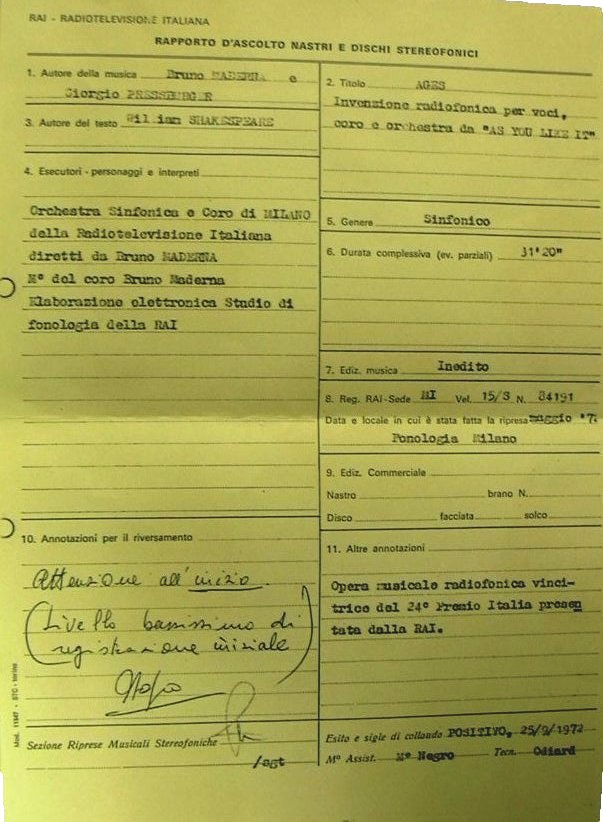 RAI - RADIOTELEVISIONE ITALIANA
RAPPORTO D'ASCOLTO NASTRI E DISCHI STEREOFONICI
1. Autore della musica Bruno MADERNA e
Giorgio PRESSBURGER
3. Autore del testo William SHAKESPEARE
4. Esecutori - personaggi e interpreti
Orchestra Sinfonica e Coro di MILANO
della Radiotelevisione Italiana
diretti da Bruno MADERNA
M° del coro Bruno Maderna
Elaborazione elettronica Studio di
fonologia della RAI
10. Annotazioni per il riversamento
Attenzione all'inizio.
(Livello bassissimo di
registrazione iniziale)
Sezione Riprese Musicali Stereofoniche
/agt
Mod. 11547 - STG - torino
2. Titolo AGES
Invenzione radiofonica per voci,
coro e orchestra da "AS YOU LIKE IT"
5. Genere Sinfonico
6. Durata complessiva (ev. parziali) 31'20"
7. Ediz. musica Inedito
8. Reg. RAI-Sede MI Vel. 15/S N. 84191
Data e locale in cui è stata fatta la ripresa maggio '7
Fonologia Milano
9. Ediz. Commerciale
Nastro brano N.
Disco facciata solco
11. Altre annotazioni
Opera musicale radiofonica vinci-
trice del 24° Premio Italia presen
tata dalla RAI.
Esito e sigle di collaudo POSITIVO, 25/9/1972
M° Assist. M° Negro Tecn. Odiard